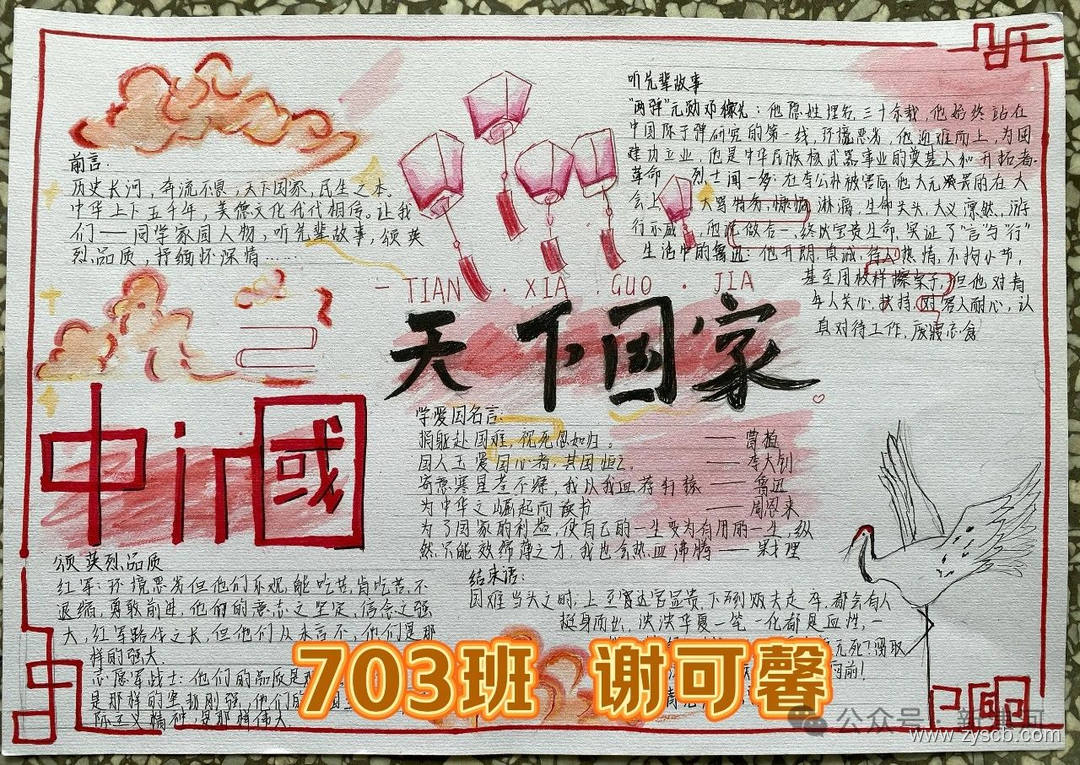 前言.
历史长河,奔流不息,天下国家,民生之本.
中华上下五千年,美德文化代代相传。让我
们——同学家国人物,听先辈故事,颂英
烈品质,抒缅怀深情……
听先辈故事
"两弹"元勋邓稼先:他隐姓埋名,三十余载,他始终站在
中国原子弹研究的第一线,环境恶劣,他迎难而上,为国
建功立业,他是中华民族核武器事业的奠基人和开拓者.
革命烈士闻一多:在李公朴被害后,他大无畏的在大
会上 大骂特务,慷慨淋漓,生命关头,大义凛然,游
行示威,他说做合一,终以宝贵生命,实证了"言与行"
生活中的鲁迅:他开朗,真诚,待人热情,不拘小节,
甚至用袄袖擦桌子,但他对青
年人关心,扶持,对客人耐心,认
真对待工作,废寝忘食
- TIAN · XIA · GUO · JIA
天下国家
中国
学爱国名言:
捐躯赴国难,视死忽如归。 —— 曹植
国人无爱国心者,其国恒亡。 —— 李大钊
寄意寒星荃不察,我以我血荐轩辕 —— 鲁迅
为中华之崛起而读书 —— 周恩来
为了国家的利益,使自己的一生变为有用的一生,纵
然只能效绵薄之力,我也会热血沸腾 —— 果戈理
颂英烈品质
红军:环境恶劣但他们乐观,能吃苦,肯吃苦,不
退缩,勇敢前进,他们的意志之坚定,信念之强
大,红军路伐之长,但他们从未言不,他们是那
样的强大.
志愿军战士:他们的品质是那
是那样的坚韧刚强,他们的
际主义精神,是那样伟大
结束语:
国难当头之时,上至富达官显贵,下到贩夫走卒,都会有人
挺身而出,泱泱华夏一笔一化都是血性,一
无死?得取
703班 谢可馨
公众号:新
www.zyscb.com